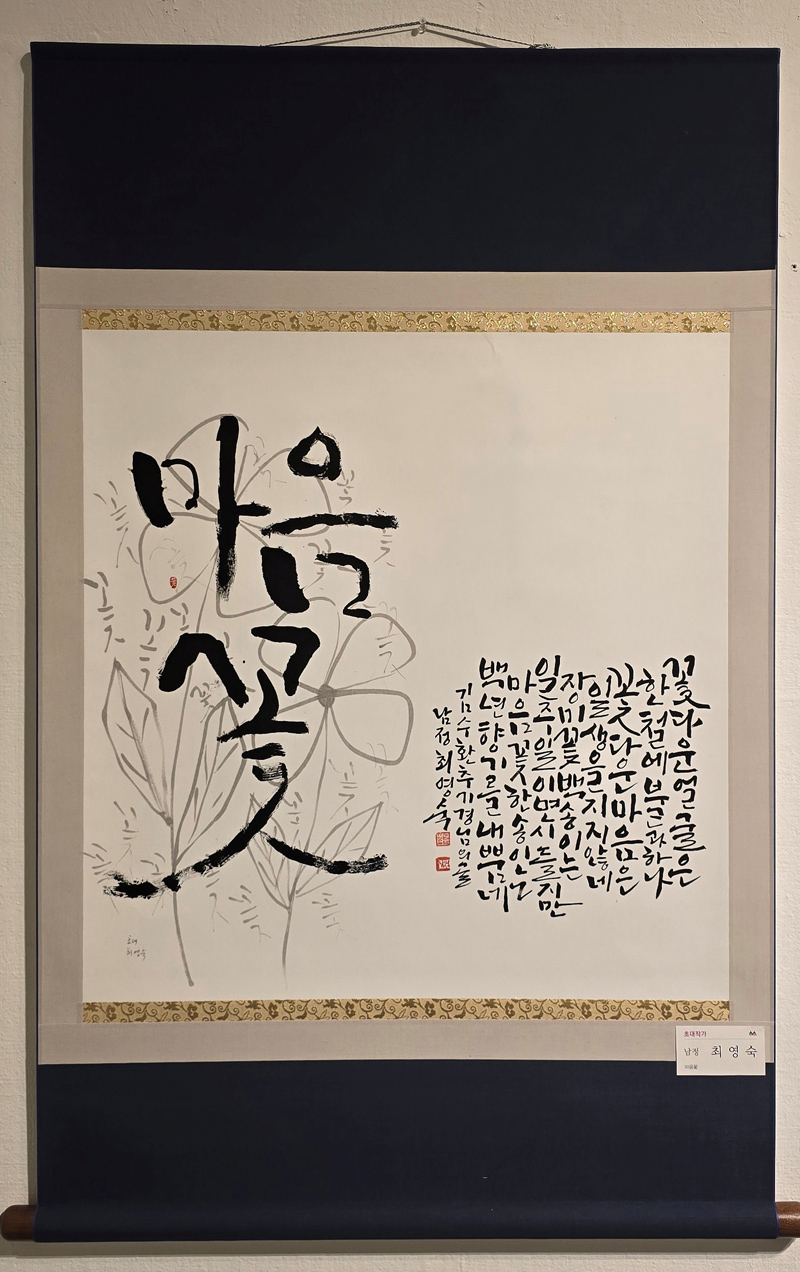 마음
꽃
꽃다운 얼굴은
한철에 불과하나
꽃다운 마음은
일생을 지지 않네
장미꽃 백송이는
일주일이면 시들지만
마음꽃 한송이는
백년 향기를 내뿜네
김수환 추기경님의 글
남정 최영숙
최영숙
초대작가
남정 최영숙
마음꽃